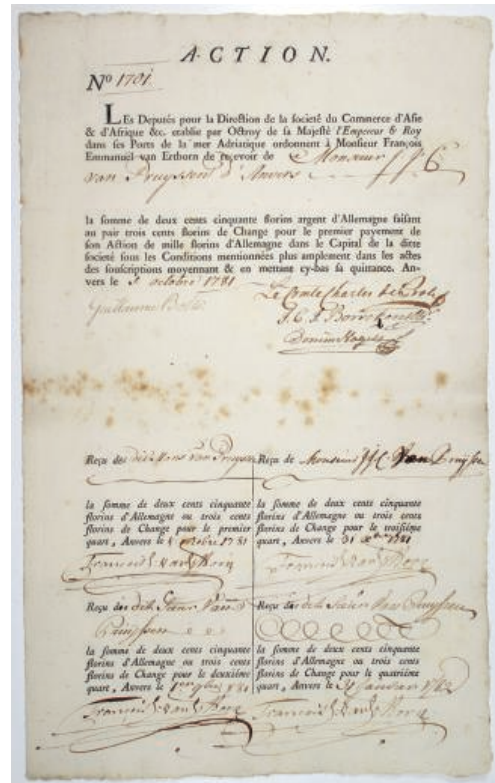 ACTION.
Nº 1701.
LEs Deputés pour la Direction de la societé du Commerce d'Asie
& d'Afrique &c. etablie par Octroy de sa Majesté l'Empereur & Roy
dans ses Ports de la mer Adriatique ordonnent à Monsieur François
Emmanuel van Ertborn de recevoir de Monsieur J. J. C.
van Pruyssen d'Anvers
la somme de deux cents cinquante florins argent d'Allemagne faisant
au pair trois cents florins de Change pour le premier payement de
son Action de mille florins d'Allemagne dans le Capital de la ditte
societé sous les Conditions mentionnées plus amplement dans les actes
des souscriptions moyennant & en mettant cy-bas sa quittance. An-
vers le octobre 1781
Guillaume Bolts
Le Comte Charles de Proli
Reçu de dit Mons van Pruyssen
la somme de deux cents cinquante
florins d'Allemagne ou trois cents
florins de Change pour le premier
quart, Anvers le octobre 1781
Reçu de Monsieur J J C Van Pruyssen
la somme de deux cents cinquante
florins d'Allemagne ou trois cents
florins de Change pour le troisième
quart, Anvers le 31 Xbre 1781
Reçu du dit Sieur Van
Pruyssen
la somme de deux cents cinquante
florins d'Allemagne ou trois cents
florins de Change pour le deuxième
quart, Anvers le
Reçu du dit Sieur Van Pruyssen
la somme de deux cents cinquante
florins d'Allemagne ou trois cents
florins de Change pour le quatrième
quart, Anvers le 31 Janvier 1782